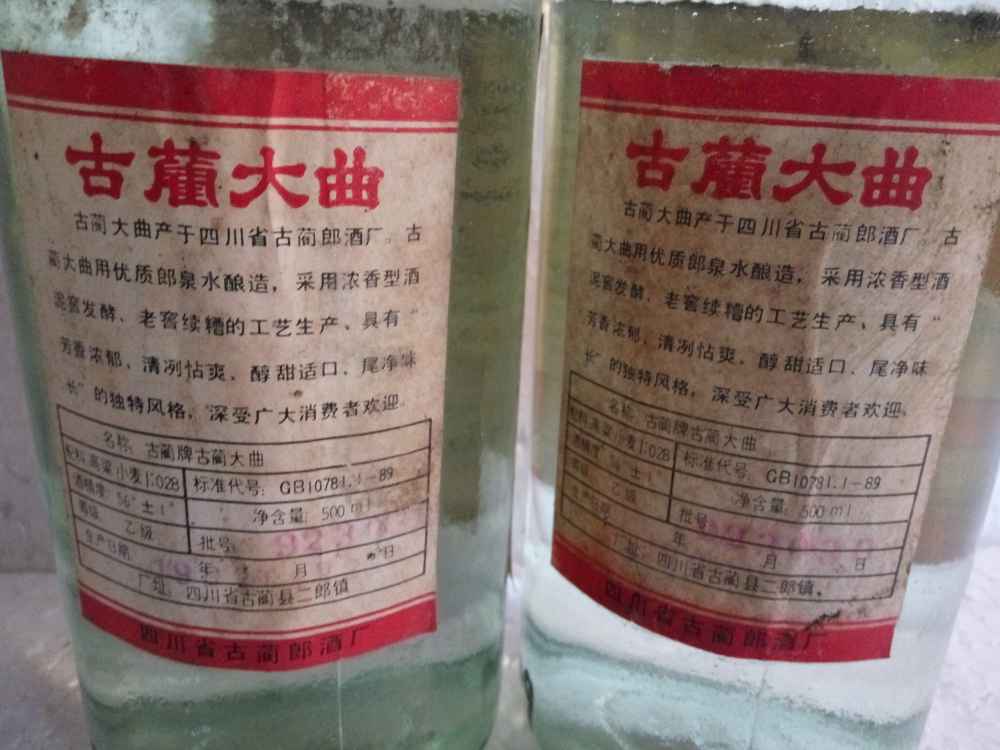 古蔺大曲
古蔺大曲产于四川省古蔺郎酒厂。古
蔺大曲用优质郎泉水酿造，采用浓香型酒
泥窖发酵、老窖续糟的工艺生产、具有“
芳香浓郁，清冽怗爽、醇甜适口、尾净味
长”的独特风格，深受广大消费者欢迎。
名称：古蔺牌古蔺大曲
配料：高粱小麦1:028
标准代号：GB10781.1-89
酒精度：56°±1°
净含量：500ml
等级
乙级
批号：
生产日期
年
月
日
厂址：四川省古蔺县二郎镇
四川省古蔺郎酒厂
古蔺大曲
古蔺大曲产于四川省古蔺郎酒厂。古
蔺大曲用优质郎泉水酿造，采用浓香型酒
泥窖发酵、老窖续糟的工艺生产、具有“
芳香浓郁，清冽怗爽、醇甜适口、尾净味
长”的独特风格，深受广大消费者欢迎。
名称：古蔺牌古蔺大曲
配料：高粱小麦1:028
标准代号：GB10781.1-89
净含量：500ml
乙级
批号：
生产日期
年
月
日
厂址：四川省古蔺县二郎镇。
四川省古蔺郎酒厂